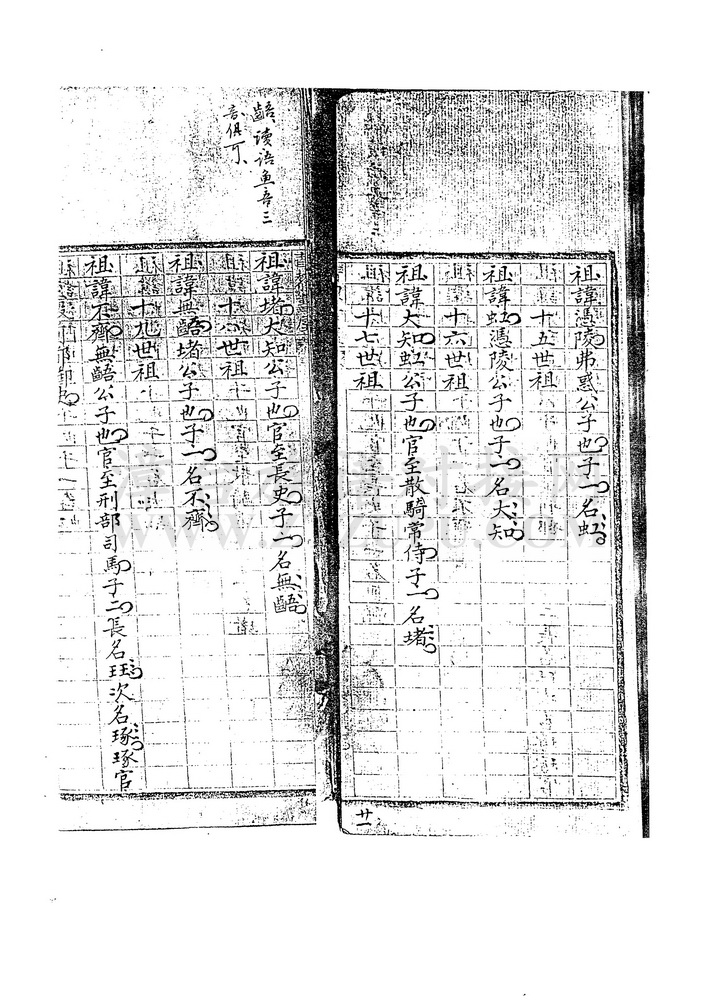 祖諱憑陵弗惑公子也子一名虹
十五世祖
祖諱虹憑陵公子也子一名大知
十六世祖
祖諱大知虹公子也官至散騎常侍子一名堵
十七世祖
廿一
齬读语鱼吾三
音俱可、
祖諱堵大知公子也官至長史子一名無齬
十八世祖
祖諱無齬堵公子也子一名不齊
十九世祖
祖諱不齊無齬公子也官至刑部司馬子二長名玨次名琢琢官